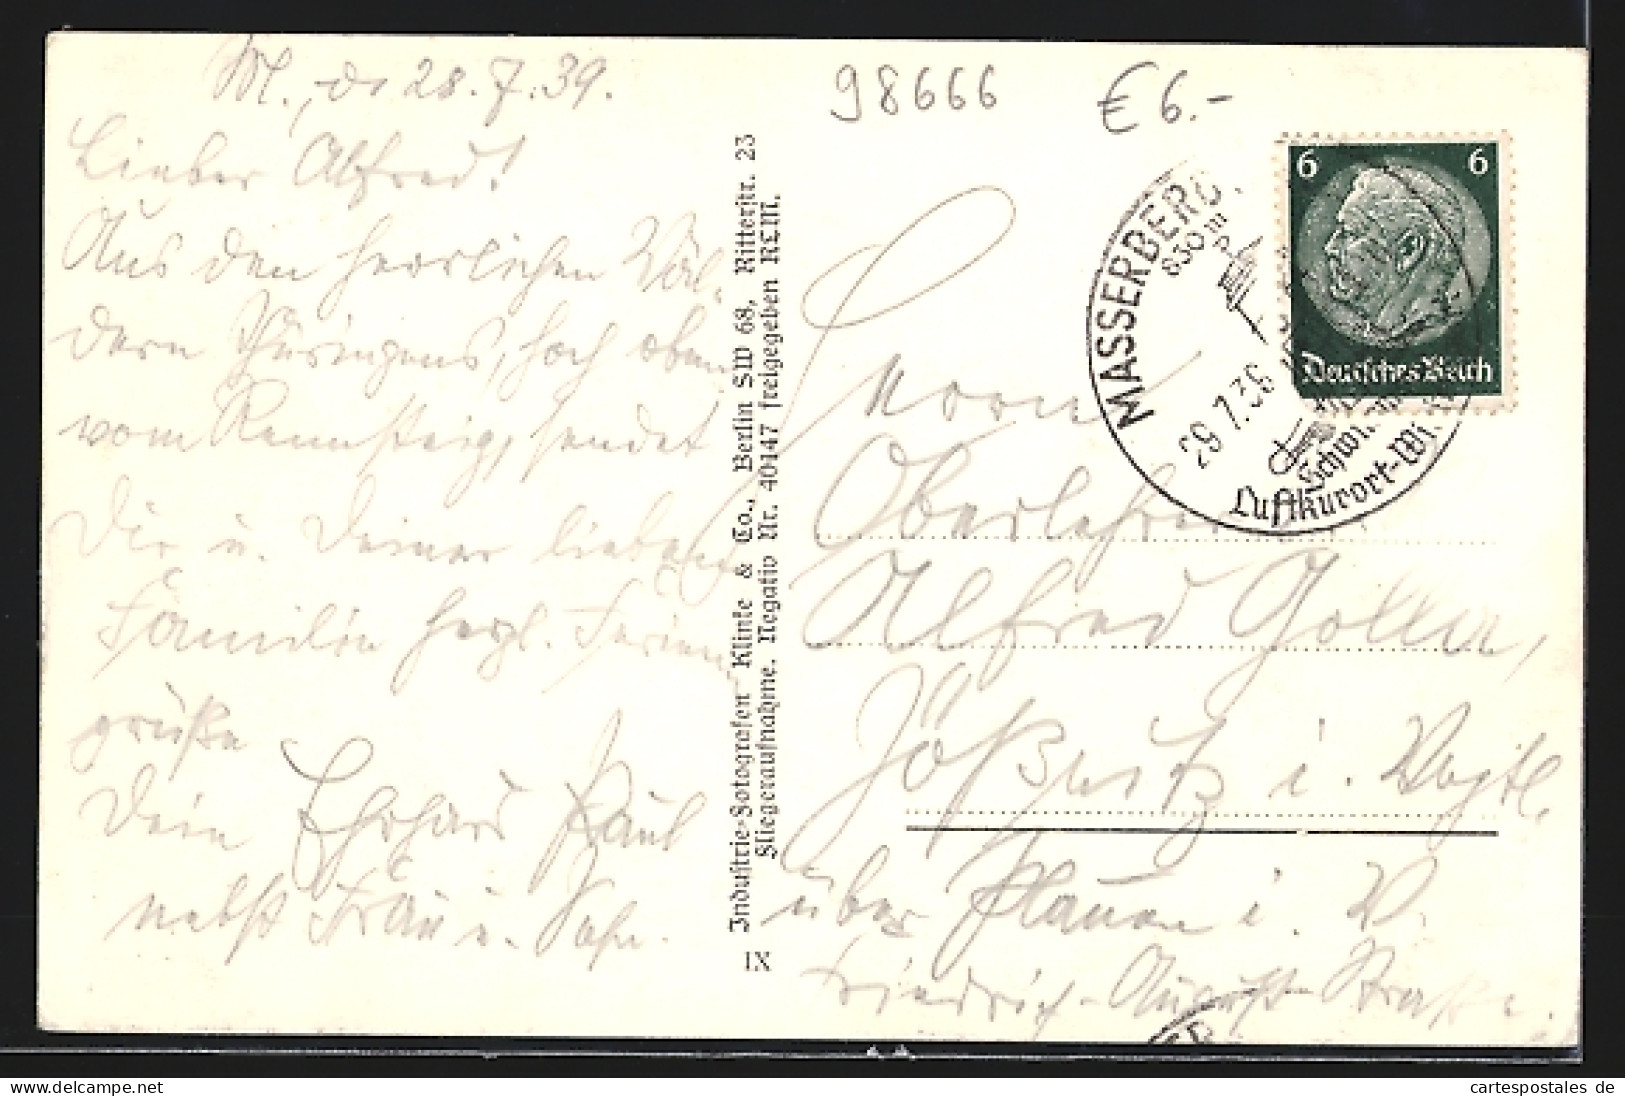 M., d. 28.7.39.
Lieber Alfred!
Aus den herrlichen Wäl-
dern Thüringens, hoch oben
vom Rennsteig, sendet
Dir u. Deiner lieben
Familie herzl. Ferien-
grüße
Dein Ehrhard Paul
nebst Frau u. Sohn.
Industrie-Fotografen Klinke & Co., Berlin SW 68, Ritterstr. 23
Fliegeraufnahme. Negativ Nr. 40147 freigegeben RLM.
IX
98666
€ 6.-
6 6
Deutsches Reich
MASSERBERG
830 m
29.7.3
Luftkurort-Wi
Herrn
Oberlehrer
Alfred Goller,
Jößnitz i. Vogtl.
über Plauen i. V.
Friedrich-August-Straße
hipstamp.com/store/cartespostales
cartespostales de